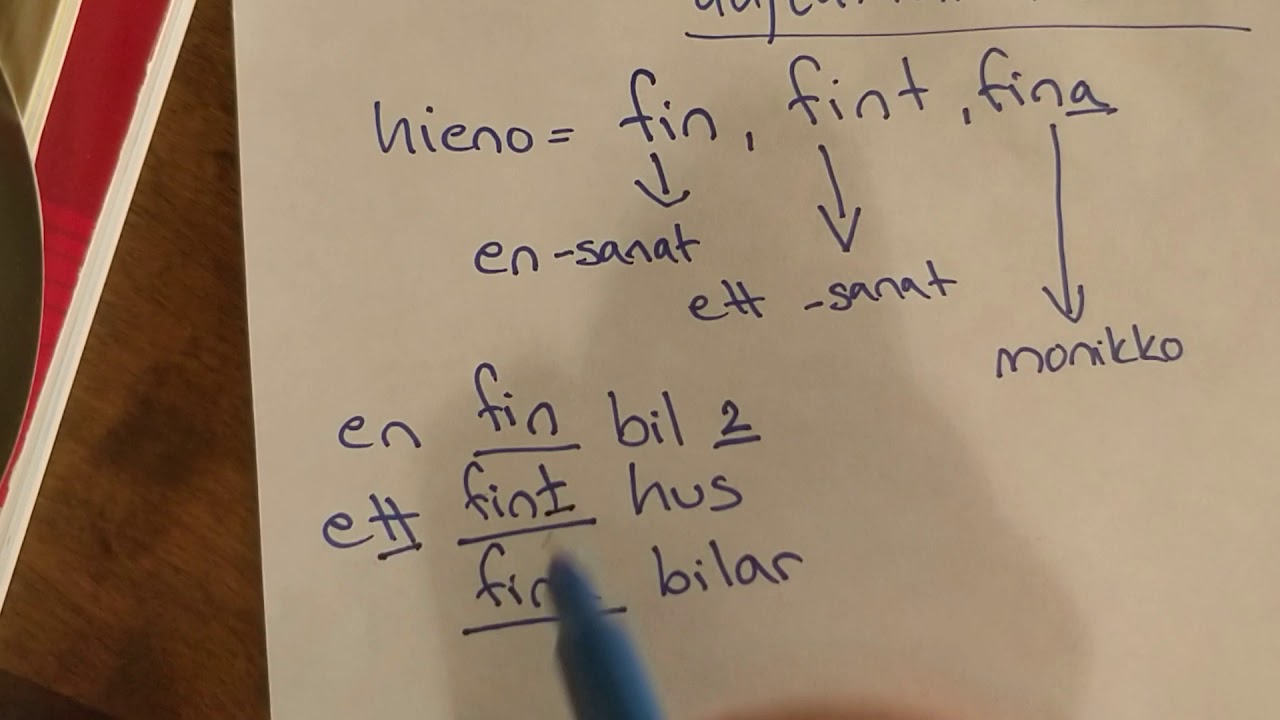 hieno = fin, fint, fina
en-sanat
ett -sanat
monikko
en fin bil 2
ett fint hus
bilar